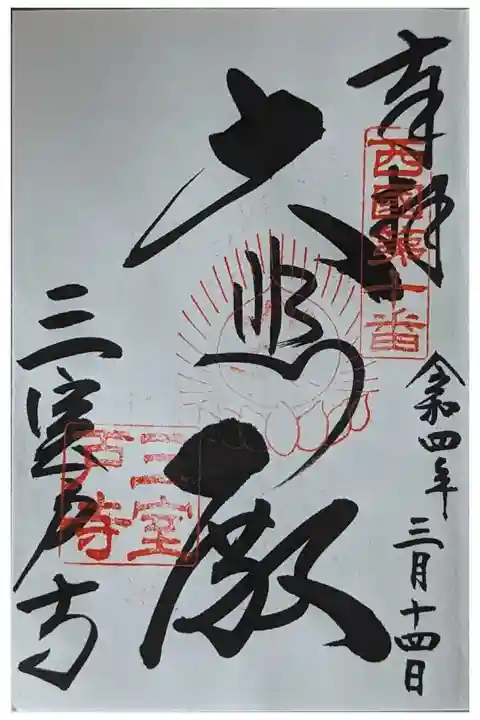 奉拝
西國第十番
令和四年三月十四日
大悲殿
三室戸寺
三室
戸寺